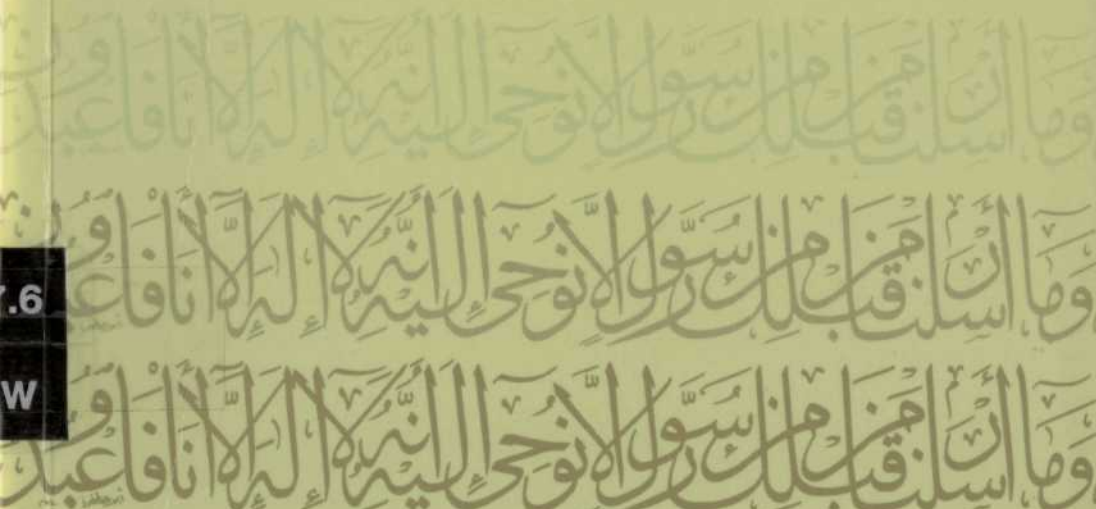 وَمَآ أَرْسَلْنَا مِن قَبْلِكَ مِن رَّسُولٍ إِلَّا نُوحِىٓ إِلَيْهِ أَنَّهُۥ لَآ إِلَٰهَ إِلَّآ أَنَا۠ فَٱعْبُدُونِ
وَمَآ أَرْسَلْنَا مِن قَبْلِكَ مِن رَّسُولٍ إِلَّا نُوحِىٓ إِلَيْهِ أَنَّهُۥ لَآ إِلَٰهَ إِلَّآ أَنَا۠ فَٱعْبُدُونِ
.6
وَمَآ أَرْسَلْنَا مِن قَبْلِكَ مِن رَّسُولٍ إِلَّا نُوحِىٓ إِلَيْهِ أَنَّهُۥ لَآ إِلَٰهَ إِلَّآ أَنَا۠ فَٱعْبُدُونِ
W